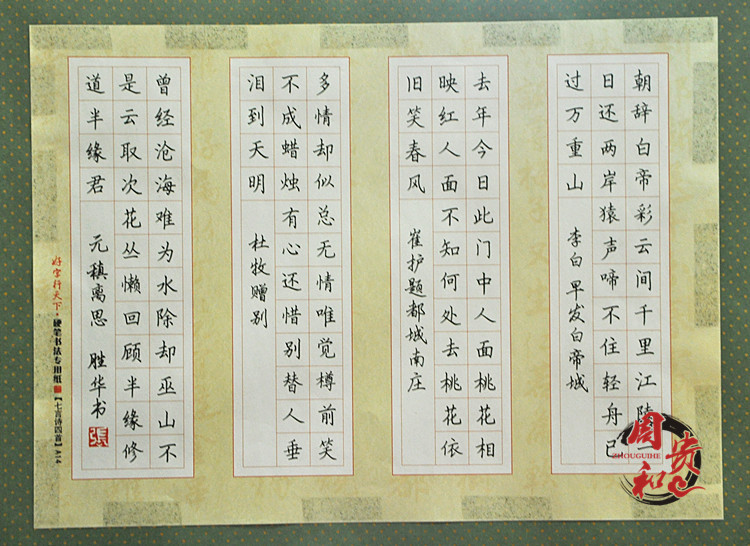 朝辞白帝彩云间千里江陵
日还两岸猿声啼不住轻舟已
过万重山
李白 早发白帝城
去年今日此门中人面桃花相
映红人面不知何处去桃花依
旧笑春风
崔护题都城南庄
多情却似总无情唯觉樽前笑
不成蜡烛有心还惜别替人垂
泪到天明
杜牧赠别
曾经沧海难为水除却巫山不
是云取次花丛懒回顾半缘修
道半缘君
元稹离思 胜华书
張
好字行天下·硬笔书法专用纸【七言诗四首】A14
周贵和
ZHOUGUIHE